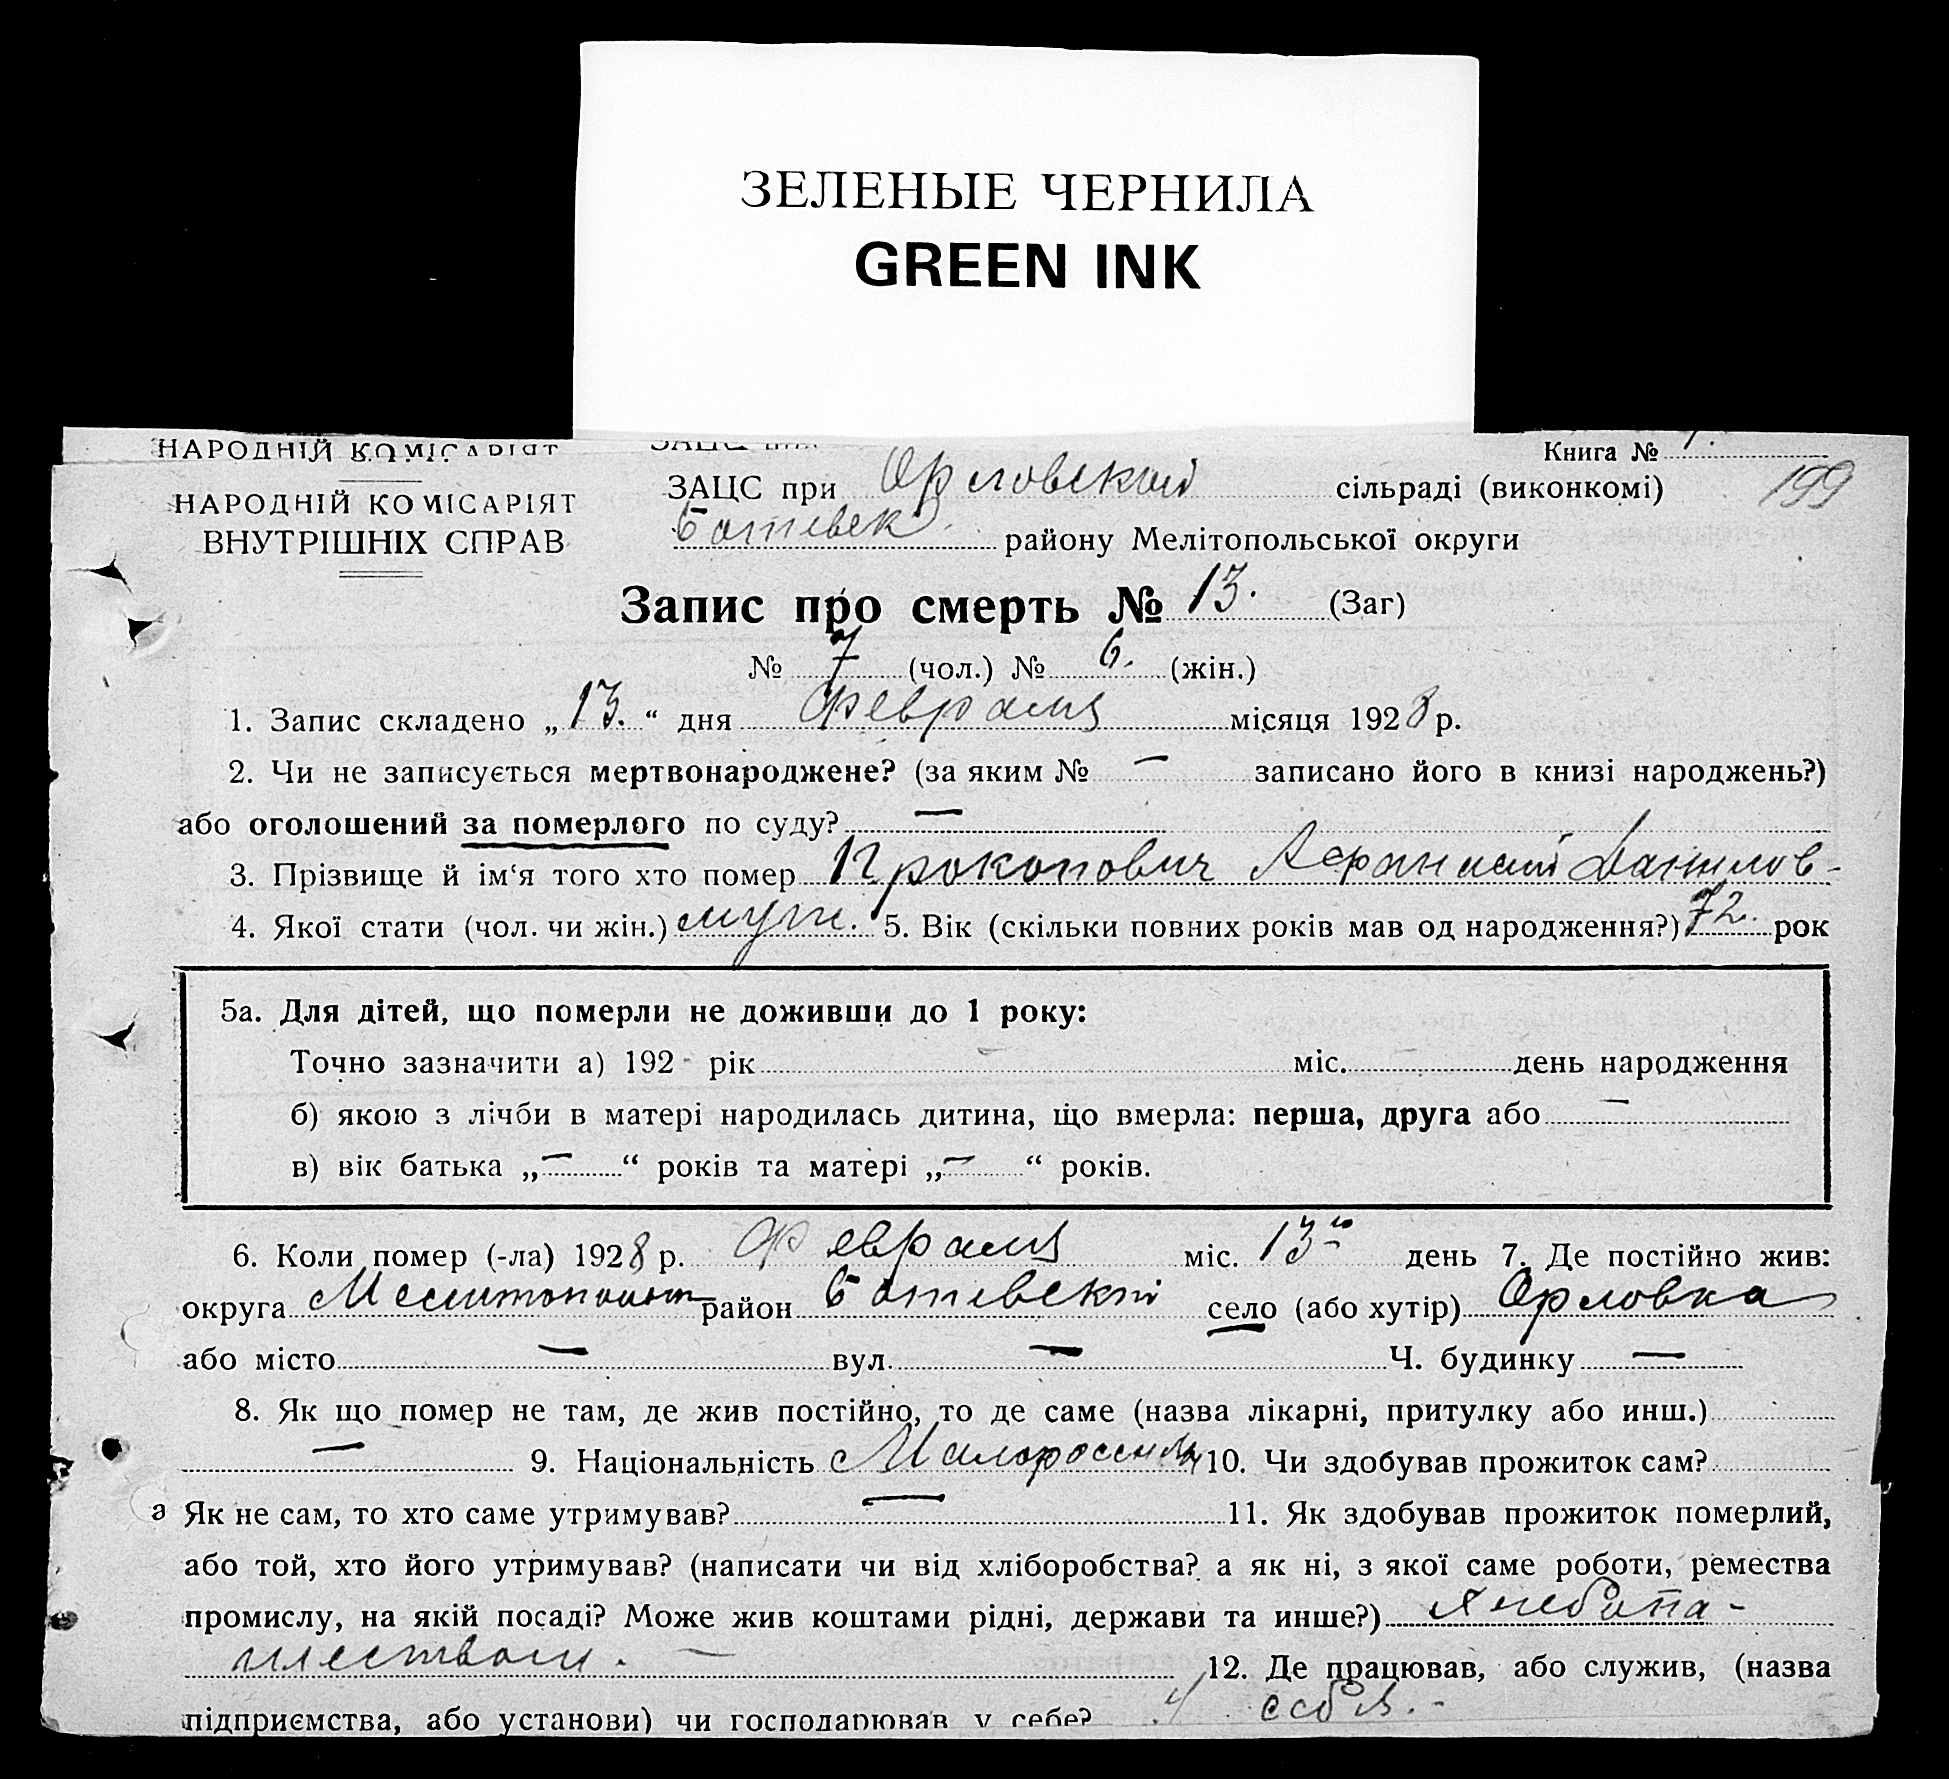 ЗЕЛЕНЫЕ ЧЕРНИЛА
GREEN INK
НАРОДНІЙ КОМІСАРІЯТ
Книга №
НАРОДНІЙ КОМІСАРІЯТ
ВНУТРІШНІХ СПРАВ
ЗАЦС при Орловский сільраді (виконкомі) 199
Ботиевск. району Мелітопольської округи
Запис про смерть № 13. (Заг)
№ 7 (чол.) № 6. (жін.)
1. Запис складено „13.“ дня Февраля місяця 1928 р.
2. Чи не записується мертвонароджене? (за яким № — записано його в книзі народжень?)
або оголошений за померлого по суду? —
3. Прізвище й ім‘я того хто помер Прокопович Афанасий Данилов-
4. Якої стати (чол. чи жін.) муж. 5. Вік (скільки повних років мав од народження?) 72. рок
5а. Для дітей, що померли не доживши до 1 року:
Точно зазначити а) 192- рік міс. день народження
б) якою з лічби в матері народилась дитина, що вмерла: перша, друга або —
в) вік батька „—“ років та матері „—“ років.
6. Коли помер (-ла) 1928 р. Февраля міс. 13го день 7. Де постійно жив:
округа район Ботиевский село (або хутір) Орловка
або місто — вул. — Ч. будинку —
8. Як що помер не там, де жив постійно, то де саме (назва лікарні, притулку або инш.)
— 9. Національність 10. Чи здобував прожиток сам?
Як не сам, то хто саме утримував? — 11. Як здобував прожиток померлий,
або той, хто його утримував? (написати чи від хліборобства? а як ні, з якої саме роботи, ремества
промислу, на якій посаді? Може жив коштами рідні, держави та инше?) Хлебопа-
шеством. — 12. Де працював, або служив, (назва
підприємства, або установи) чи господарював у себе? У себя. -